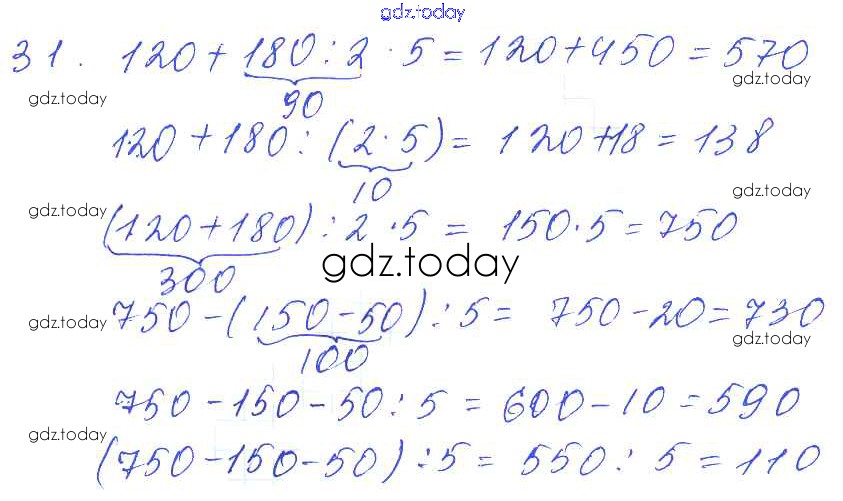 gdz.today
31. 120 + 180 : 2 · 5 = 120 + 450 = 570
gdz.today
gdz.today
90
120 + 180 : (2 · 5) = 120 + 18 = 138
10
gdz.today
gdz.today
(120 + 180) : 2 · 5 = 150 · 5 = 750
300
gdz.today
750 - (150 - 50) : 5 = 750 - 20 = 730
gdz.today
gdz.today
100
750 - 150 - 50 : 5 = 600 - 10 = 590
gdz.today
gdz.today
(750 - 150 - 50) : 5 = 550 : 5 = 110